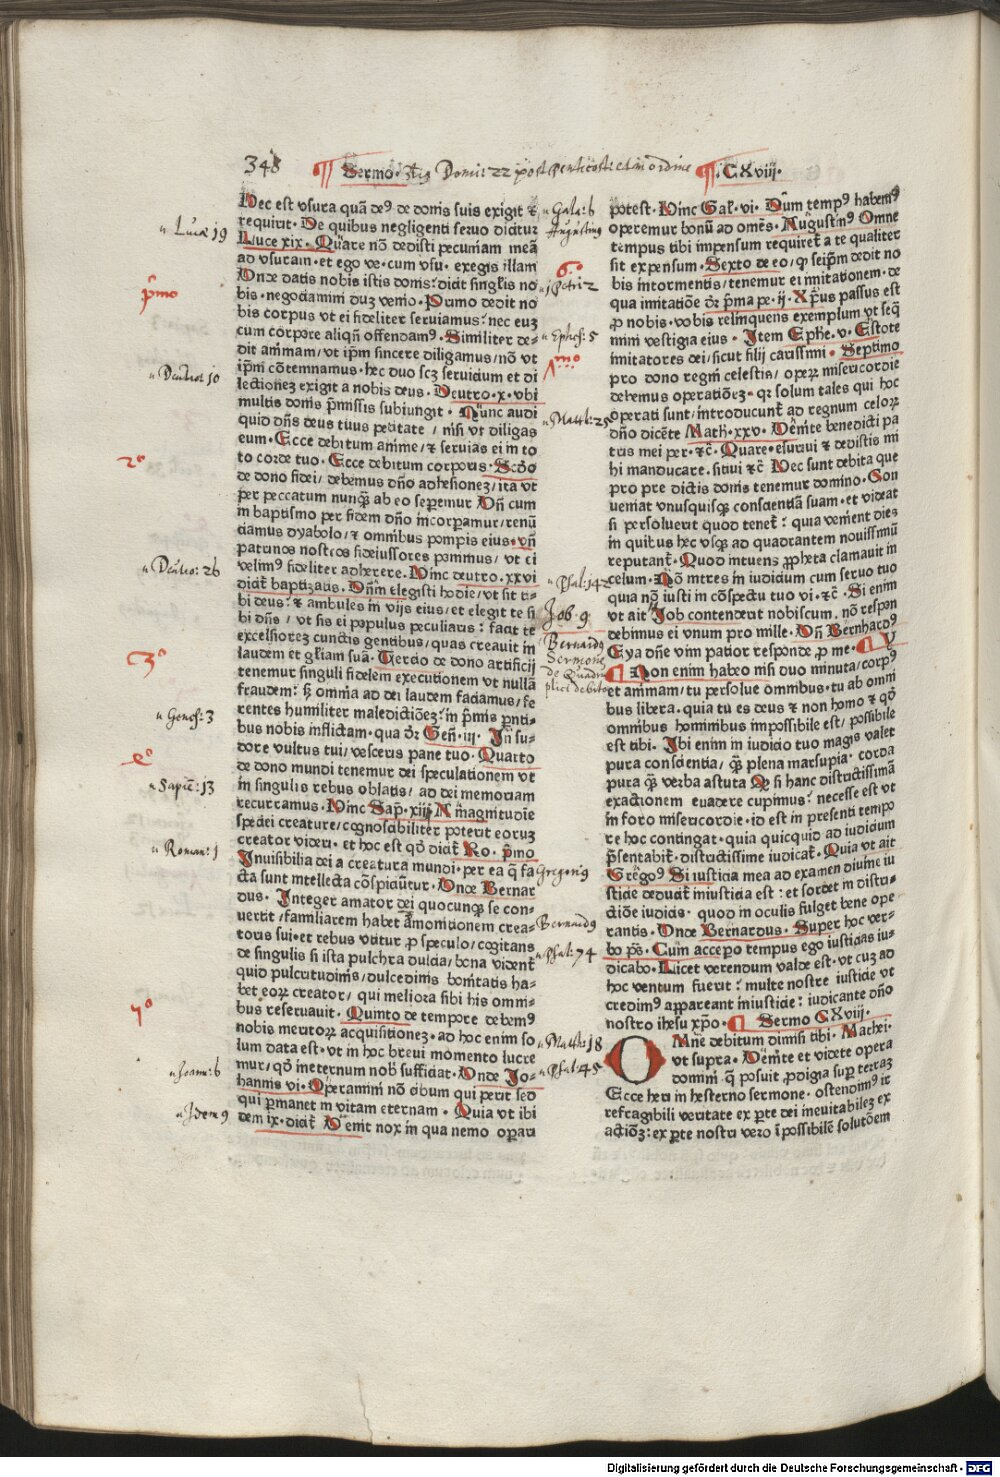 348
Sermo · 3tig Domi: 22 post Pentecost: etiā ordine · CXviij·
Hec est vsura quā de⁹ de donis suis exigit ⁊
requirit· De quibus negligenti seruo dicitur
Luce xix· Quare nō dedisti pecuniam meā
ad vsuram· et ego ve· cum vsu· exegis illam
Onde datis nobis istis donis· dicit singlis no
bis· negociamini duȝ venio· Primo dedit no
bis corpus vt ei fideliter seruiamus· nec euȝ
cum corpore aliqn̄ offendam⁹· Similiter de⸗
dit animam/ vt ip̄m sincere diligamus/ nō vt
ip̄m cōtemnamus· hec duo scȝ seruicium et di
lectionez exigit a nobis deus· Deutro·x·vbi
multis donis p̄missis subiungit· Nunc audi
quid dn̄s deus tuus petitate/ nisi vt diligas
eum· Ecce debitum anime/ ⁊ seruias ei in to
to corde tuo· Ecce debitum corporis· Scdo
de dono fidei/ debemus dn̄o adhesionez/ ita vt
per peccatum nunq̄ ab eo sepemur Dn̄ cum
in baptismo per fidem dn̄o incorpamur/ renū
ciamus dyabolo/ ⁊ omnibus pompis eius· vn̄
patrinos nostros fideiussores ponimus/ vt ei
velim⁹ fideliter adherere· Hinc deutro·xxvi
dicit̄ baptizatis· Dn̄m elegisti hodie/ vt sit ti⸗
bi deus· ⁊ ambules in vijs eius/ et elegit te si
bi dn̄s/ vt sis ei populus peculiaris: facit te
excelsiorez cunctis gentibus/ quas creauit in
laudem et gl̄iam suā· Tercio de dono artificij
tenemur singuli fidelem executionem vt nulla
fraudem: sȝ omnia ad dei laudem faciamus/ fe
rentes humiliter maledictiōez· in p̄mis pn̄ti⸗
bus nobis inflictam· qua dr̄ Gen̄·iij· In su⸗
dore vultus tui/ vesceris pane tuo· Quarto
de dono mundi tenemur dei speculationem vt
in singulis rebus oblatis/ ad dei memoriam
recurramus· Hinc Sap·xiij A magnitudie
speciei creature/ cognoscibiliter poterit eoruȝ
creator videri· et hoc est qd dicit̄ Ro· p̄mo
Inuisibilia dei a creatura mundi· per ea q̄ fa
cta sunt intellecta cōspiciūtur· Onde Bernar
dus· Integer amator dei quocunq̄ se con⸗
uertit/ familiarem habet āmonitionem crea⸗
toris sui· et rebus vtitur p̱ speculo/ cogitans
de singulis si ista pulchra dulcia/ bona vident̄
quid pulcritudinis/ dulcedinis bonitatis ha⸗
bet eorꝝ creator/ qui meliora sibi his omni⸗
bus reseruauit· Quinto de tempore debem⁹
nobis meritorꝝ acquisitionez· ad hoc enim so
lum data est· vt in hoc breui momento lucre
mur/ qd ineternum nob̄ sufficiat· Onde Jo⸗
hannis vi· Operamini nō cibum qui perit sed
qui permanet in vitam eternam· Quia vt ibi
dem ix· dicit̄ Venit nox in qua nemo operari
potest· Hinc Gal·vi· Dum temp⁹ habem⁹
operemur bonū ad omēs· Augustin⁹ Omne
tempus tibi impensum requiret̄ a te qualiter
sit expensum· Sexto de eo/ qd seip̄m dedit no
bis intormentis/ tenemur ei imitationem· de
qua imitatiōe dr̄ p̄ma pe·ij· Xp̄us passus est
p̱ nobis· vobis relinquens exemplum vt seq̄
mini vestigia eius· Item Ephe·v· Estote
imitatores dei/ sicut filij carissimi· Septimo
pro dono regni celestis/ operꝝ misericordie
debemus operatiōez· qr solum tales qui hoc
operati sunt/ introducunt̄ ad regnum celorꝝ
dn̄o dicēte Math·xxv· Venite benedicti pa
tris mei per· ⁊c̄· Quare· esuriui ⁊ dedistis mi
hi manducare· sitiui ⁊c̄ Hec sunt debita que
pro pre dictis donis tenemur domino· Con
ueniat vnusquisq̄ conscientiā suam· et videat
si persoluerit quod tenet̄: quia venient dies
in quibus hec vsq̄ ad quadrantem nouissimū
reputant̄· Quod intuens ꝓpheta clamauit in
celum· Nō intres in iudicium cum seruo tuo
quia nō iusti in cōspectu tuo vi· ⁊c̄· Si enim
vt ait Job contenderit nobiscum· nō respon
debimus ei vnum pro mille· Dn̄ Bernhard⁹
Eya dn̄e vim patior responde ꝓ me· V
Non enim habeo nisi duo minuta/ corp⁹
et animam/ tu persolue omnibus· tu ab omni
bus libera· quia tu es deus ⁊ non homo ⁊ qd
omnibus hominibus impossibile est/ possibile
est tibi· Ibi enim in iudicio tuo magis valet
pura conscientia/ q̄ plena marsupia· corda
pura q̄ verba astuta Qd si hanc districtissimā
exactionem euadere cupimus: necesse est vt
in foro misericordie· id est in presenti tempo
re hoc contingat· quia quicquid ad iudicium
p̄sentabit̄· districtissime iudicat̄· Quia vt ait
Grego⁹ Si iusticia mea ad examen diuine iu
sticie deducit̄ iniusticia est: et sordet in distri⸗
ctiōe iudicis· quod in oculis fulget bene ope⸗
rantis· Onde Bernardus· Super hoc ver⸗
bo ps̄· Cum accepo tempus ego iusticias iu⸗
dicabo· Licet verendum valde est· vt cuȝ ad
hoc ventum fuerit: multe nostre iusticie vt
credim⁹ appareant iniusticie: iudicante dn̄o
nostro ihesu xp̄o· Sermo CXviij·
OMne debitum dimisi tibi· Mathei·
vt supra· Venite et videte opera
domini q̄ posuit ꝓdigia suꝑ terraȝ
Ecce heri in hesterno sermone· ostendim⁹ ir
refragibili veritate ex parte dei ineuitabilez ex
actiōȝ: ex parte nostri vero īpossibilē solutōem
Lucæ 19
p̄mo
Deutro: 10
2º
Deutro: 26
3º
Genes: 3
4º
Sapiē: 13
Roman: 1
5º
Joann: 6
Idem 9
Gala: 6
Augustin⁹
6º
1 Petri 2
Ephes: 5
7mo
Matth: 25
Psal: 142
Job· 9
Bernard⁹
Sermone
de Quadru
plici debito
Gregori⁹
Bernard⁹
Psal: 74
Matth: 18
Psal: 45
Digitalisierung gefördert durch die Deutsche Forschungsgemeinschaft - DFG